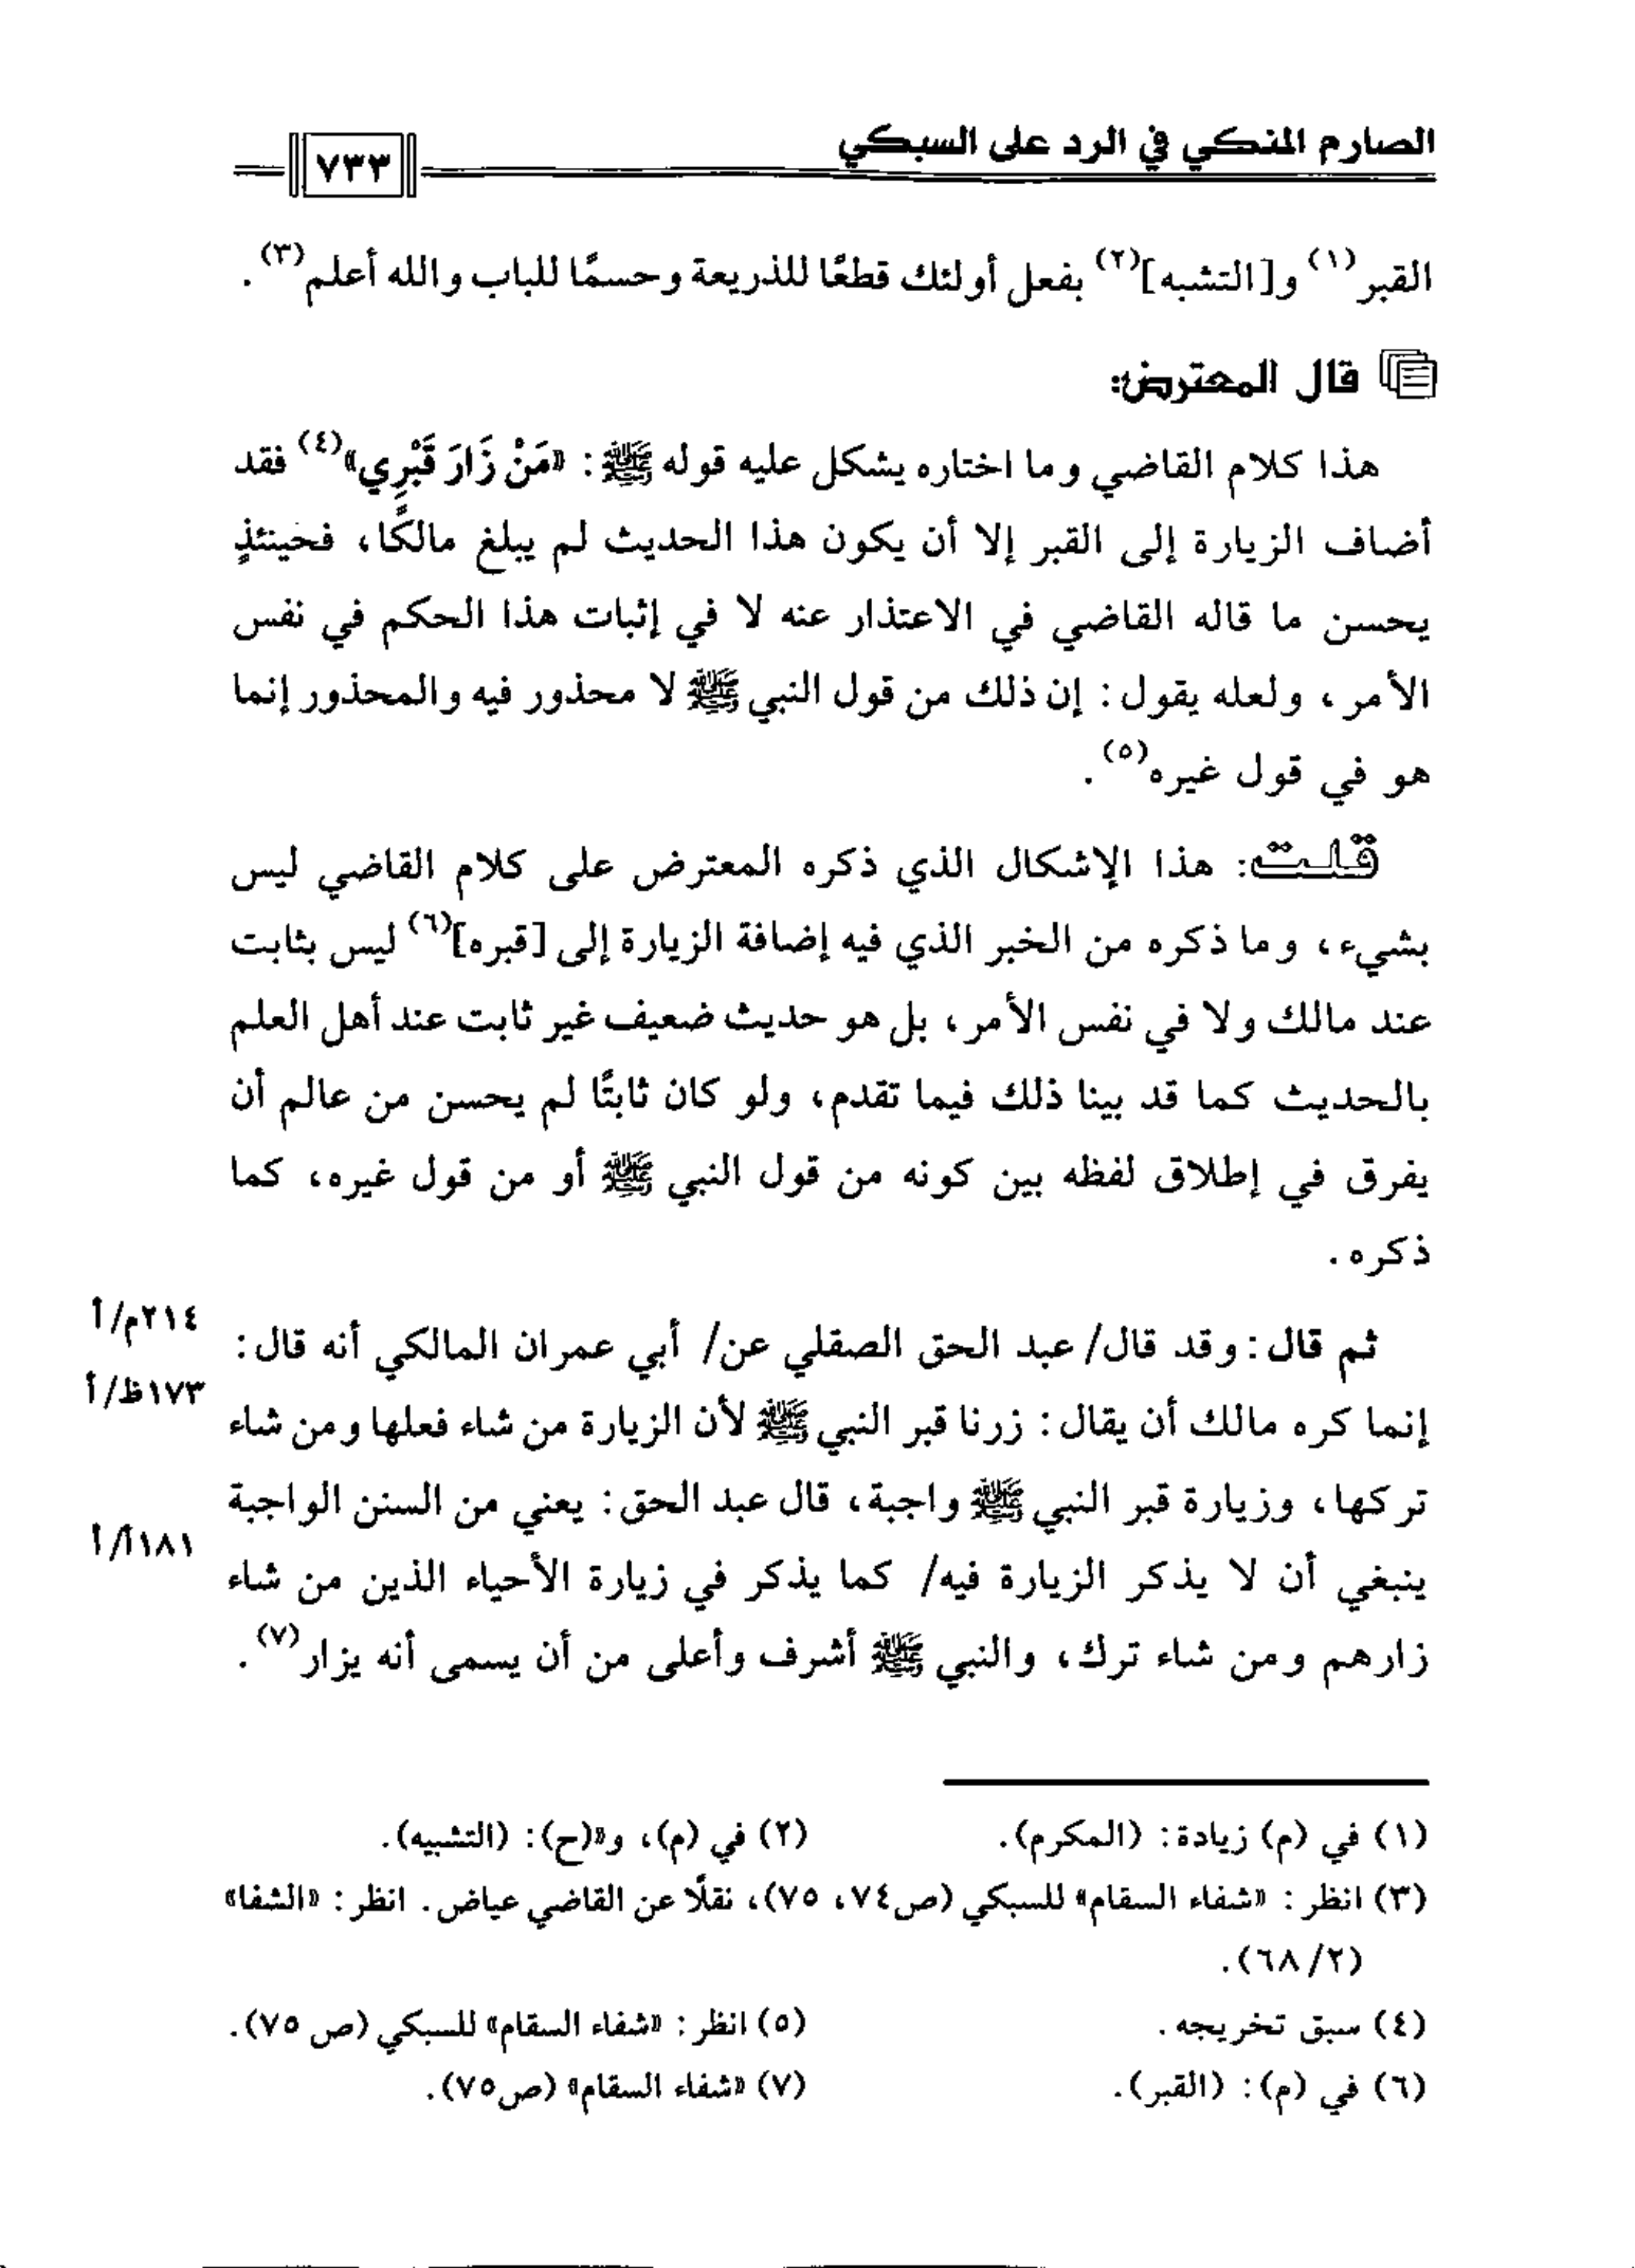 الصارم المنكي في الرد على السبكي
٧٣٣
القبر(١) و[التشبه](٢) بفعل أولئك قطعًا للذريعة وحسمًا للباب والله أعلم(٣).
قال المعترض:
هذا كلام القاضي وما اختاره يشكل عليه قوله ﷺ: «مَنْ زَارَ قَبْرِي»(٤) فقد
أضاف الزيارة إلى القبر إلا أن يكون هذا الحديث لم يبلغ مالكًا، فحينئذٍ
يحسن ما قاله القاضي في الاعتذار عنه لا في إثبات هذا الحكم في نفس
الأمر، ولعله يقول: إن ذلك من قول النبي ﷺ لا محذور فيه والمحذور إنما
هو في قول غيره(٥).
قلت: هذا الإشكال الذي ذكره المعترض على كلام القاضي ليس
بشيء، وما ذكره من الخبر الذي فيه إضافة الزيارة إلى [قبره](٦) ليس بثابت
عند مالك ولا في نفس الأمر، بل هو حديث ضعيف غير ثابت عند أهل العلم
بالحديث كما قد بينا ذلك فيما تقدم، ولو كان ثابتًا لم يحسن من عالم أن
يفرق في إطلاق لفظه بين كونه من قول النبي ﷺ أو من قول غيره، كما
ذكره.
٢١٤م/أ
ثم قال: وقد قال/ عبد الحق الصقلي عن/ أبي عمران المالكي أنه قال:
١٧٣ظ/أ
إنما كره مالك أن يقال: زرنا قبر النبي ﷺ لأن الزيارة من شاء فعلها ومن شاء
تركها، وزيارة قبر النبي ﷺ واجبة، قال عبد الحق: يعني من السنن الواجبة
١٨١أ/أ
ينبغي أن لا يذكر الزيارة فيه/ كما يذكر في زيارة الأحياء الذين من شاء
زارهم ومن شاء ترك، والنبي ﷺ أشرف وأعلى من أن يسمى أنه يزار(٧).
(١) في (م) زيادة: (المكرم).
(٢) في (م)، و«(ح): (التشبيه).
(٣) انظر: «شفاء السقام» للسبكي (ص٧٤، ٧٥)، نقلًا عن القاضي عياض. انظر: «الشفا»
(٢/ ٦٨).
(٤) سبق تخريجه.
(٥) انظر: «شفاء السقام» للسبكي (ص ٧٥).
(٦) في (م): (القبر).
(٧) «شفاء السقام» (ص٧٥).